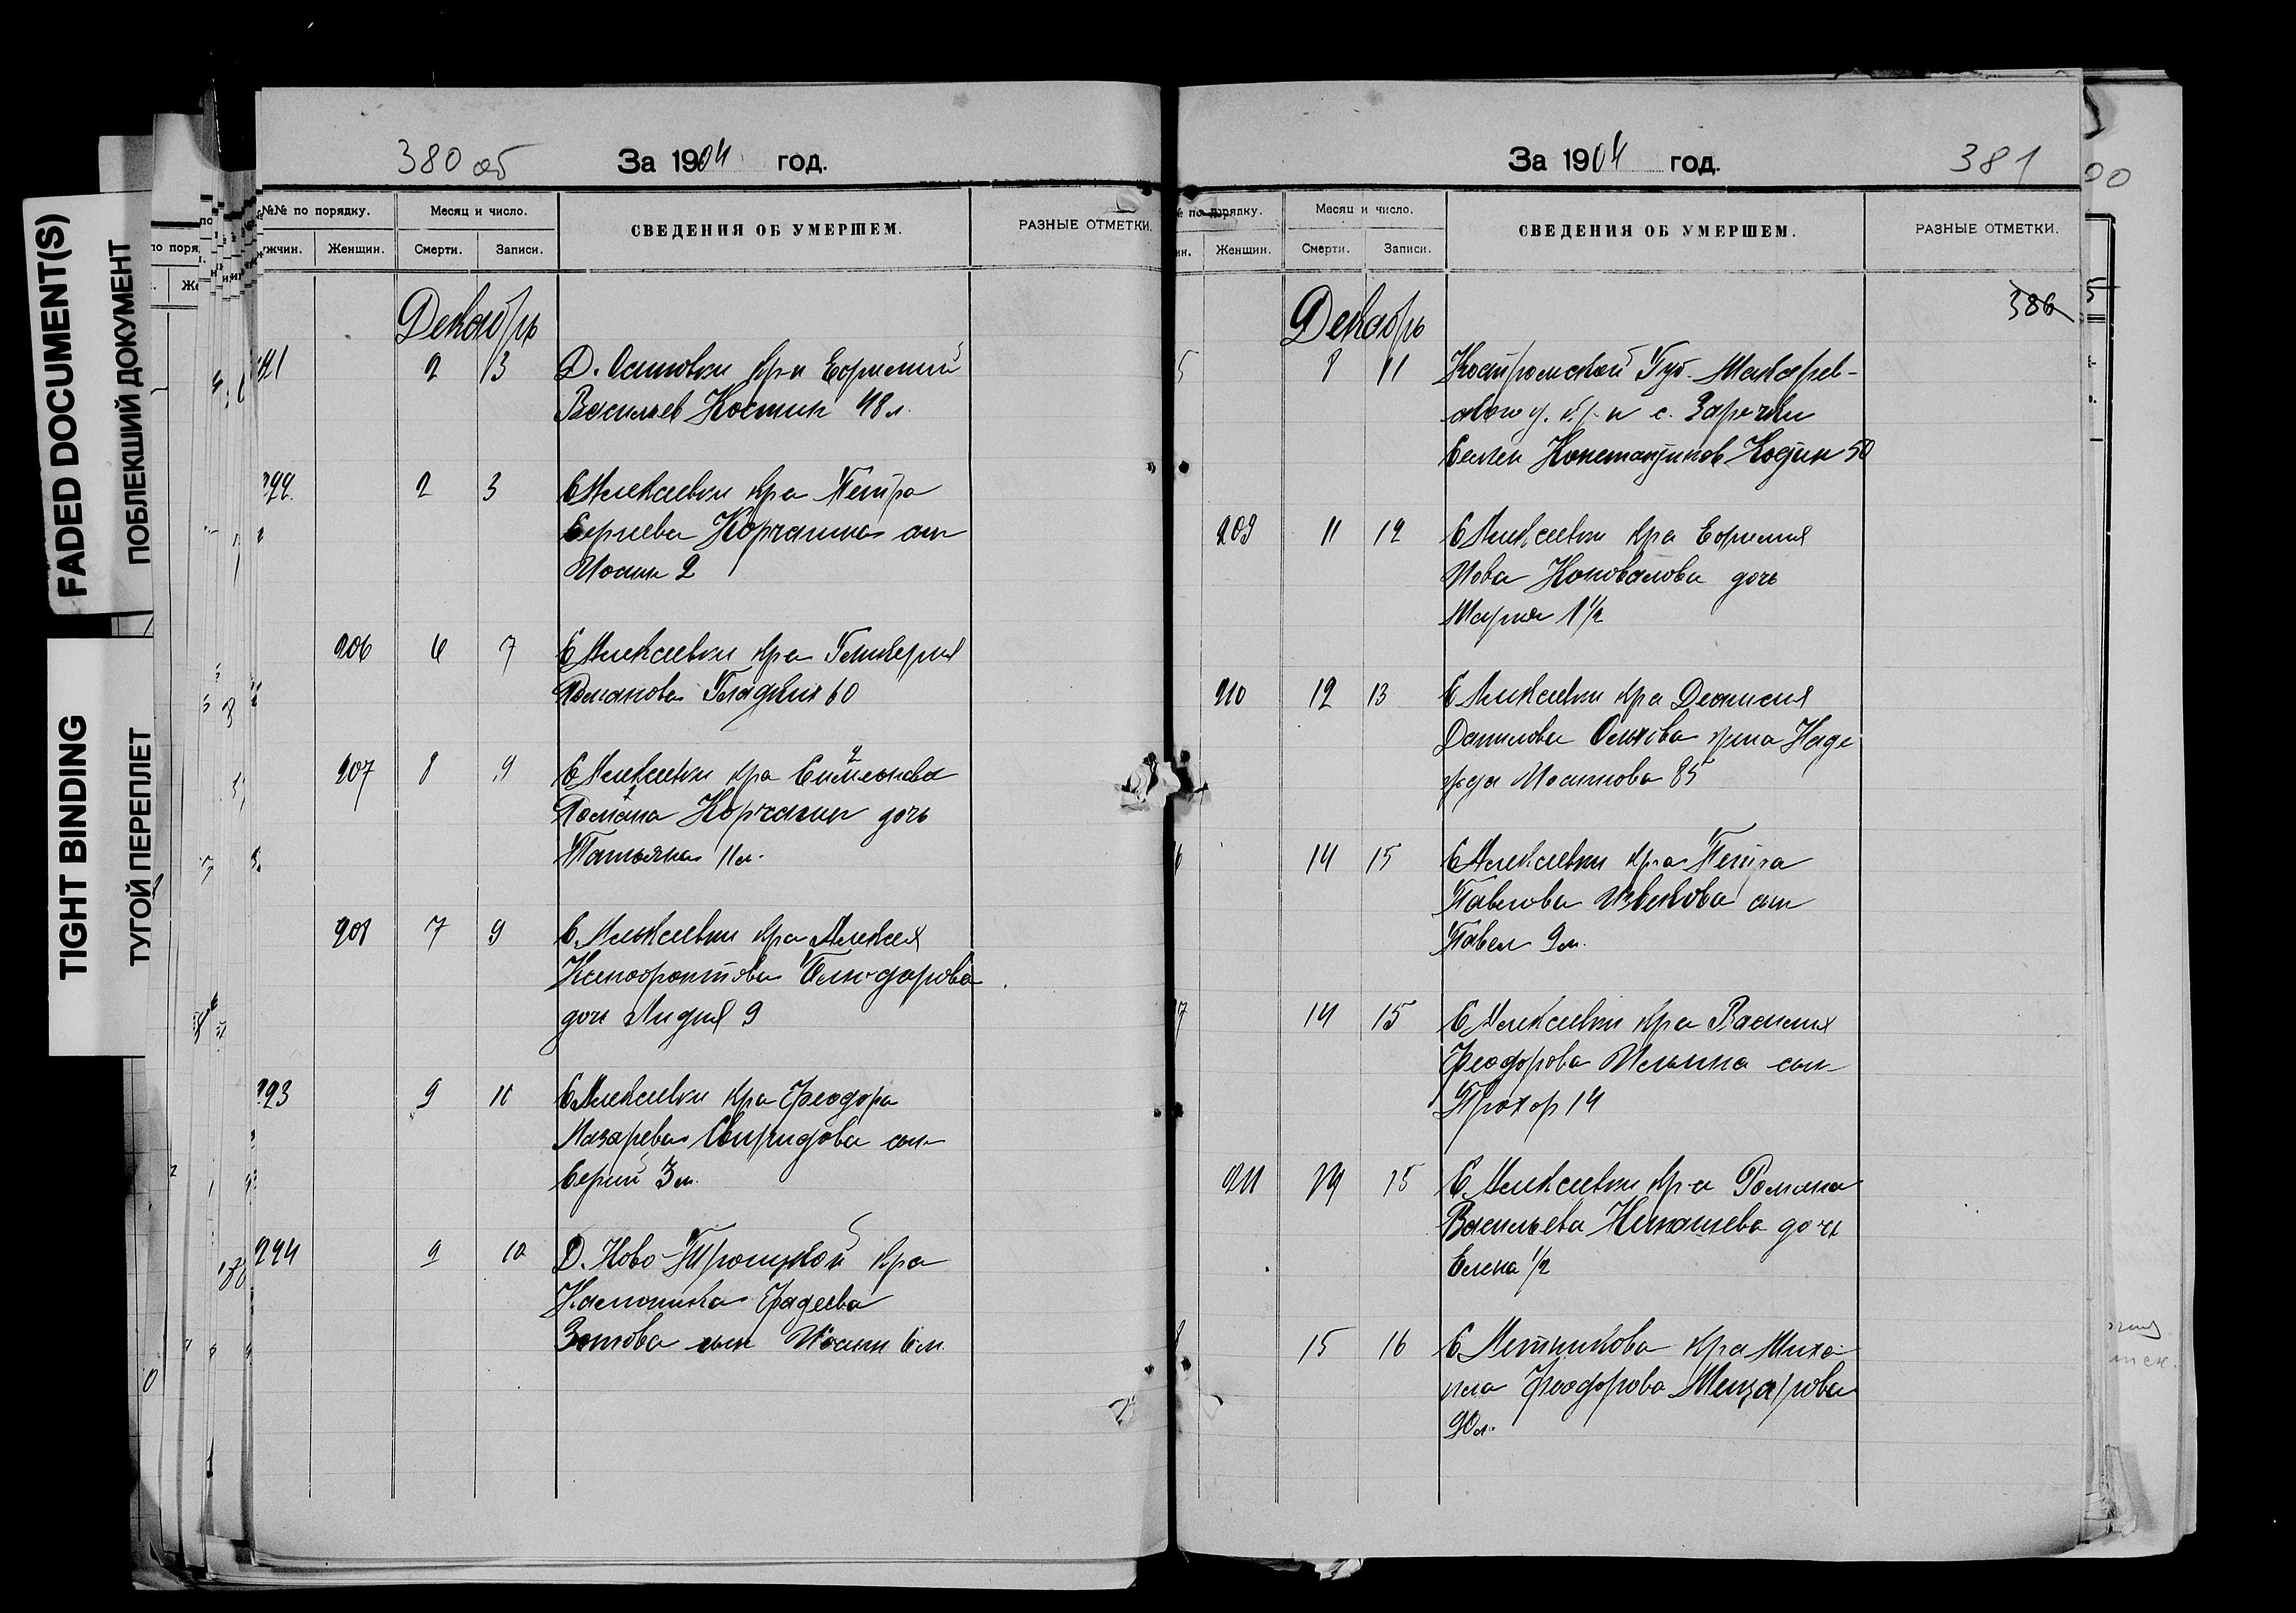 FADED DOCUMENT(S)
ПОБЛЕКШИЙ ДОКУМЕНТ
TIGHT BINDING
ТУГОЙ ПЕРЕПЛЕТ
380 об
За 1904 год.
№№ по порядку. Месяц и число. СВЕДЕНИЯ ОБ УМЕРШЕМ. РАЗНЫЕ ОТМЕТКИ.
Женщин. Смерти. Записи.
Декабрь
2 3 Д. Осиновки кр-н Ефимий
Васильев Костин 48 л.
2 3 С Алексеевки кр-а Петра
Сергиева Корчагина сын
Иоанн 2
206 6 7 С Алексеевки кр-а Гликерия
Романова Гладких 60
207 8 9 С Алексеевки кра Симеонова
Романа Корчагин дочь
Татьяна 11 м.
208 7 9 С. Алексеевки кра Алексея
Ксенофонтова
дочь Лидия 9
293 9 10 С Алексеевки кра Феодора
Лазарева Свиридова сын
Сергий 3 м.
294 9 10 Д. Ново-Троицкой кра
Каллиника Фадеева
Зотова сын Иоанн 6 м.
За 1904 год.
381
по порядку. Месяц и число. СВЕДЕНИЯ ОБ УМЕРШЕМ. РАЗНЫЕ ОТМЕТКИ.
Женщин. Смерти. Записи.
386
Декабрь
5 8 11 Костромской Губ. Макарьев-
ского у. кр-н с.
Семен Константинов 50
209 11 12 С Алексеевки кра Ефимия
Иова Коновалова дочь
Мария 1 1/2
210 12 13 С Алексеевки кра Дионисия
Данилова жена Наде
жда Иоаннова 85
14 15 С Алексеевки кра Петра
Павлова Извекова сын
Павел 9 м.
7 14 15 С Алексеевки кра Василия
Феодорова Ильина сын
Прохор 14
211 14 15 С Алексеевки кр-а Романа
Васильева дочь
Елена 1/2
8 15 16 С Летникова кра Миха-
ила Феодорова
90 л.